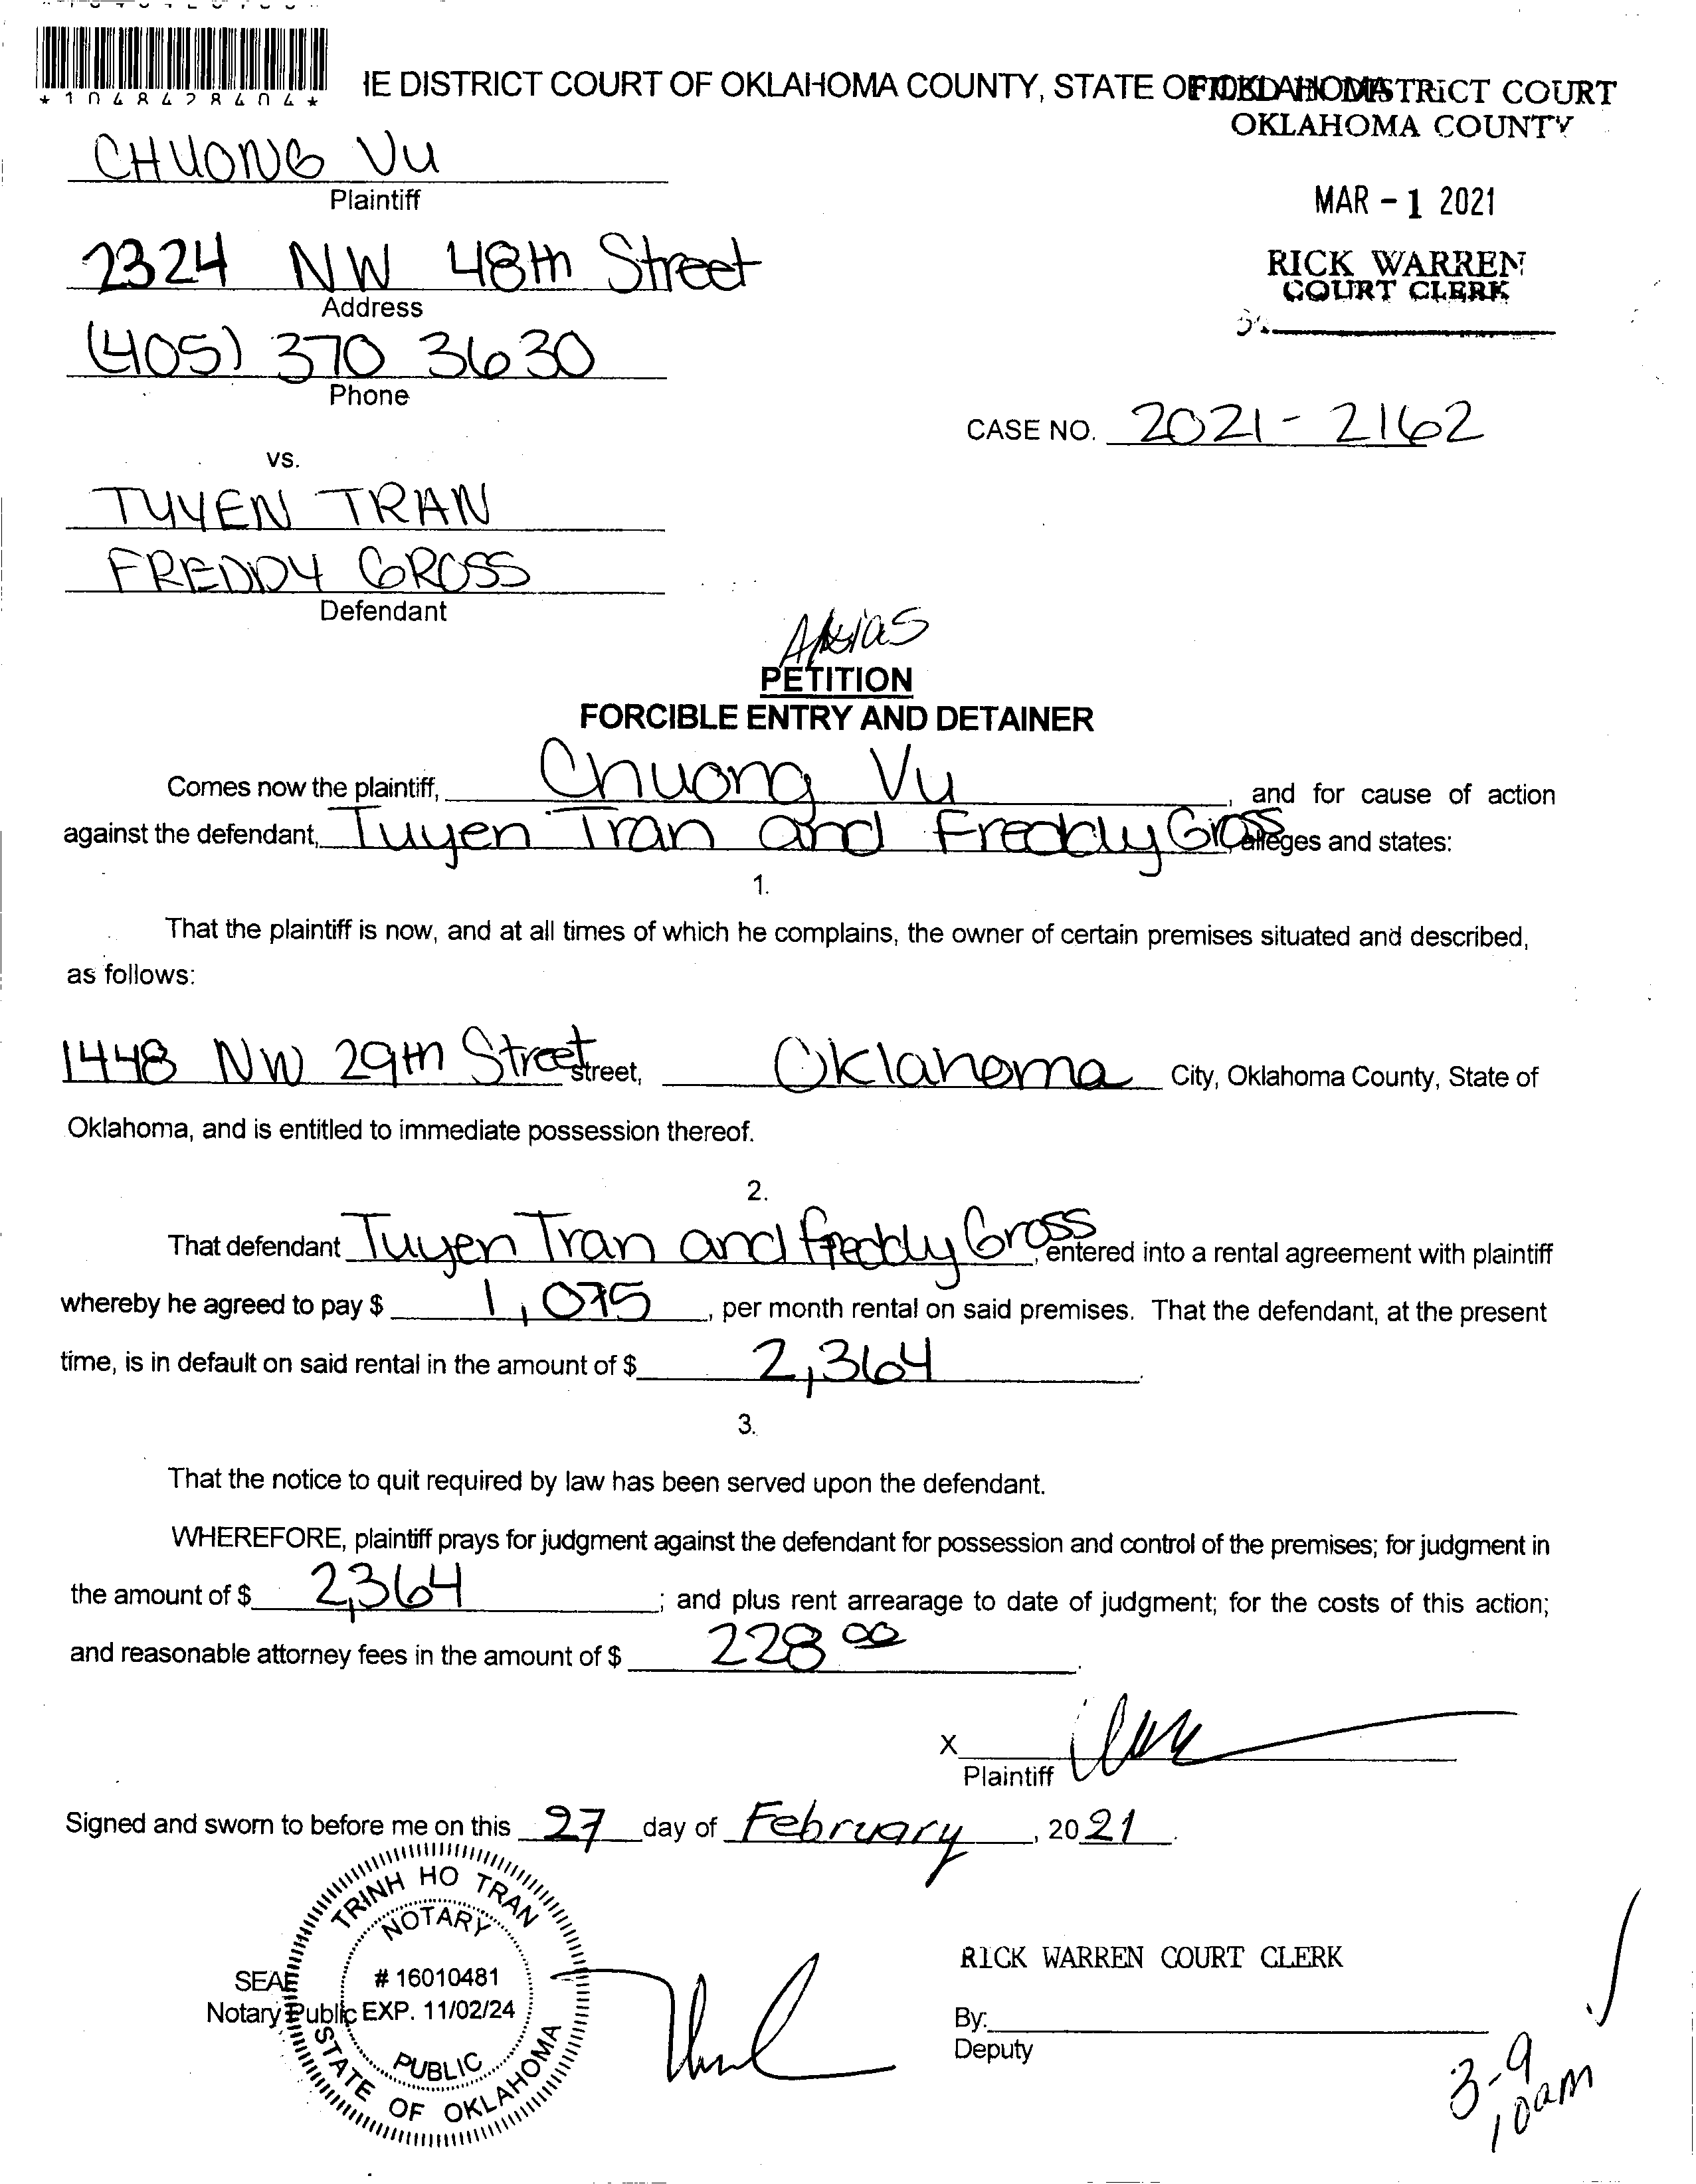 *1048428404*
IE DISTRICT COURT OF OKLAHOMA COUNTY, STATE OF OKLAHOMA
FILED IN DISTRICT COURT
OKLAHOMA COUNTY
CHUONG VU
Plaintiff
MAR - 1 2021
2324 NW 48th Street
Address
RICK WARREN
COURT CLERK
(405) 370 3630
Phone
CASE NO. 2021 - 2162
vs.
TUYEN TRAN
FREDDY GROSS
Defendant
PETITION
FORCIBLE ENTRY AND DETAINER
Comes now the plaintiff, Chuong Vu, and for cause of action
against the defendant, Tuyen Tran and Freddy Gross alleges and states:
1.
That the plaintiff is now, and at all times of which he complains, the owner of certain premises situated and described,
as follows:
1448 NW 29th Street street, Oklahoma City, Oklahoma County, State of
Oklahoma, and is entitled to immediate possession thereof.
2.
That defendant Tuyen Tran and Freddy Gross, entered into a rental agreement with plaintiff
whereby he agreed to pay $ 1,075, per month rental on said premises. That the defendant, at the present
time, is in default on said rental in the amount of $ 2,364.
3.
That the notice to quit required by law has been served upon the defendant.
WHEREFORE, plaintiff prays for judgment against the defendant for possession and control of the premises; for judgment in
the amount of $ 2,364; and plus rent arrearage to date of judgment; for the costs of this action;
and reasonable attorney fees in the amount of $ 228 00.
X
Plaintiff
Signed and sworn to before me on this 27 day of February, 2021.
TRINH HO TRAN
NOTARY
# 16010481
EXP. 11/02/24
PUBLIC
STATE OF OKLAHOMA
SEAL
Notary Public
RICK WARREN COURT CLERK
By:
Deputy
3-9
10am